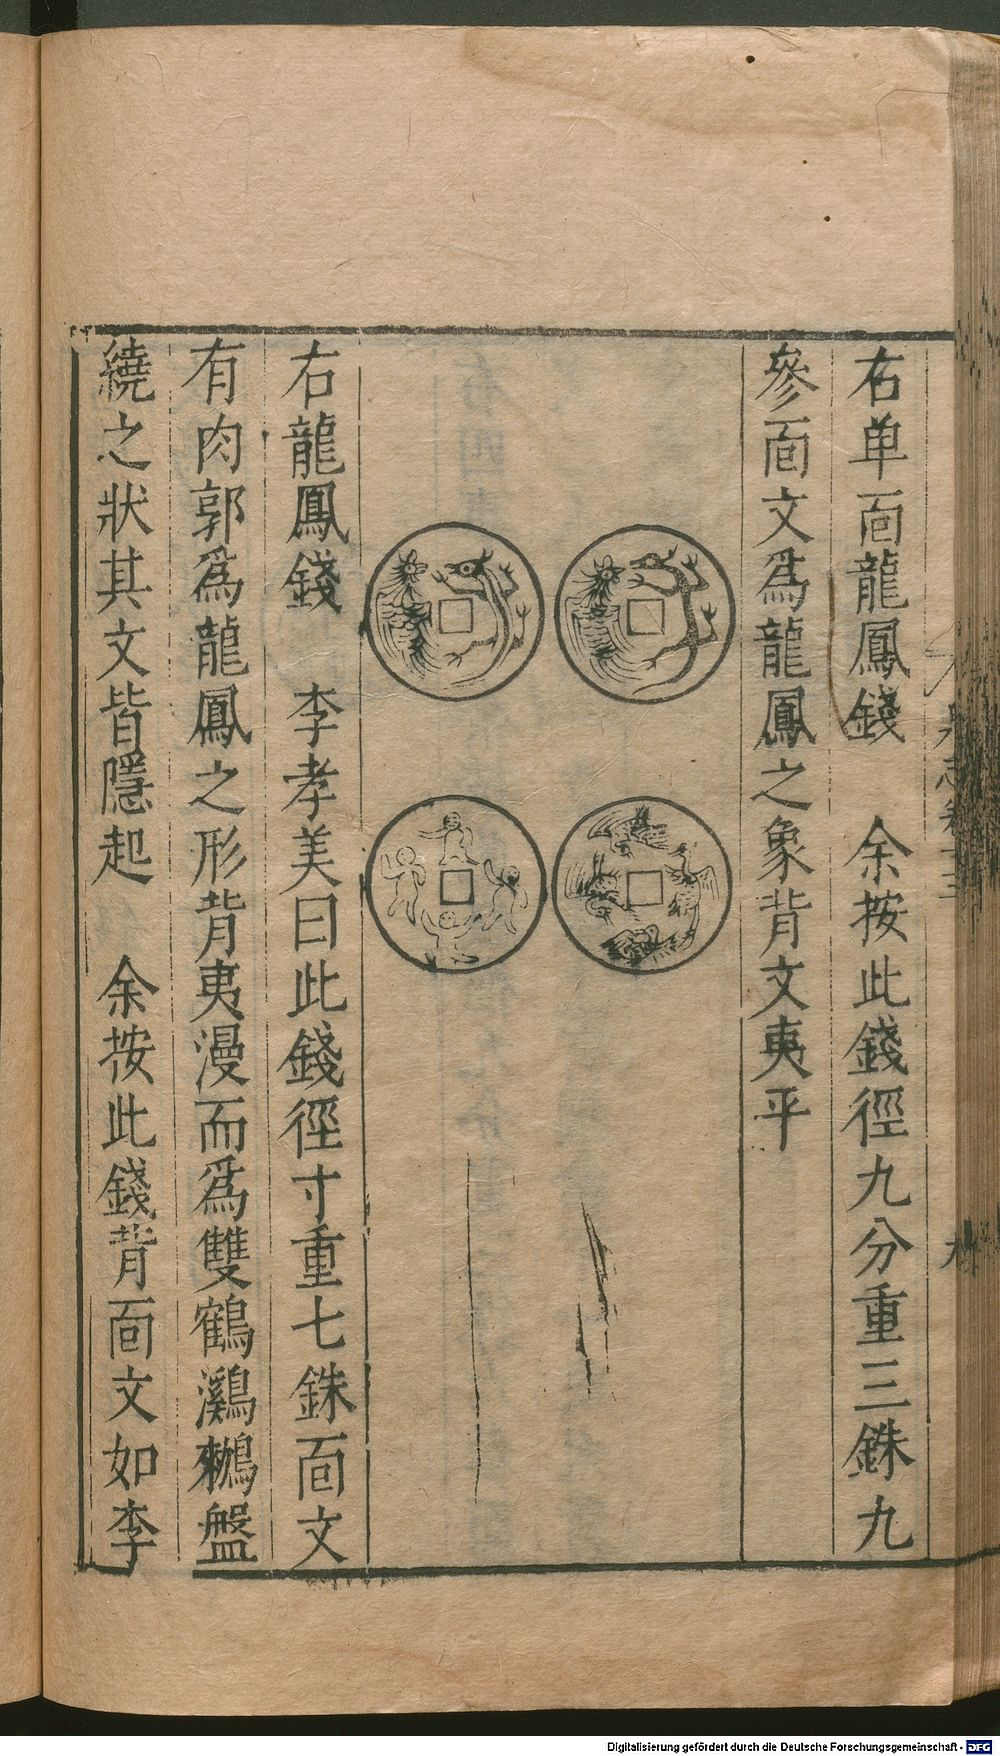 右单面龍鳳錢　余按此錢徑九分重三銖九
參面文爲龍鳳之象背文夷平
右龍鳳錢　李孝美曰此錢徑寸重七銖面文
有肉郭爲龍鳳之形背夷漫而爲雙鶴鸂鶒盤
繞之狀其文皆隱起　余按此錢背面文如李
泉志卷十五
九
Digitalisierung gefördert durch die Deutsche Forschungsgemeinschaft - DFG